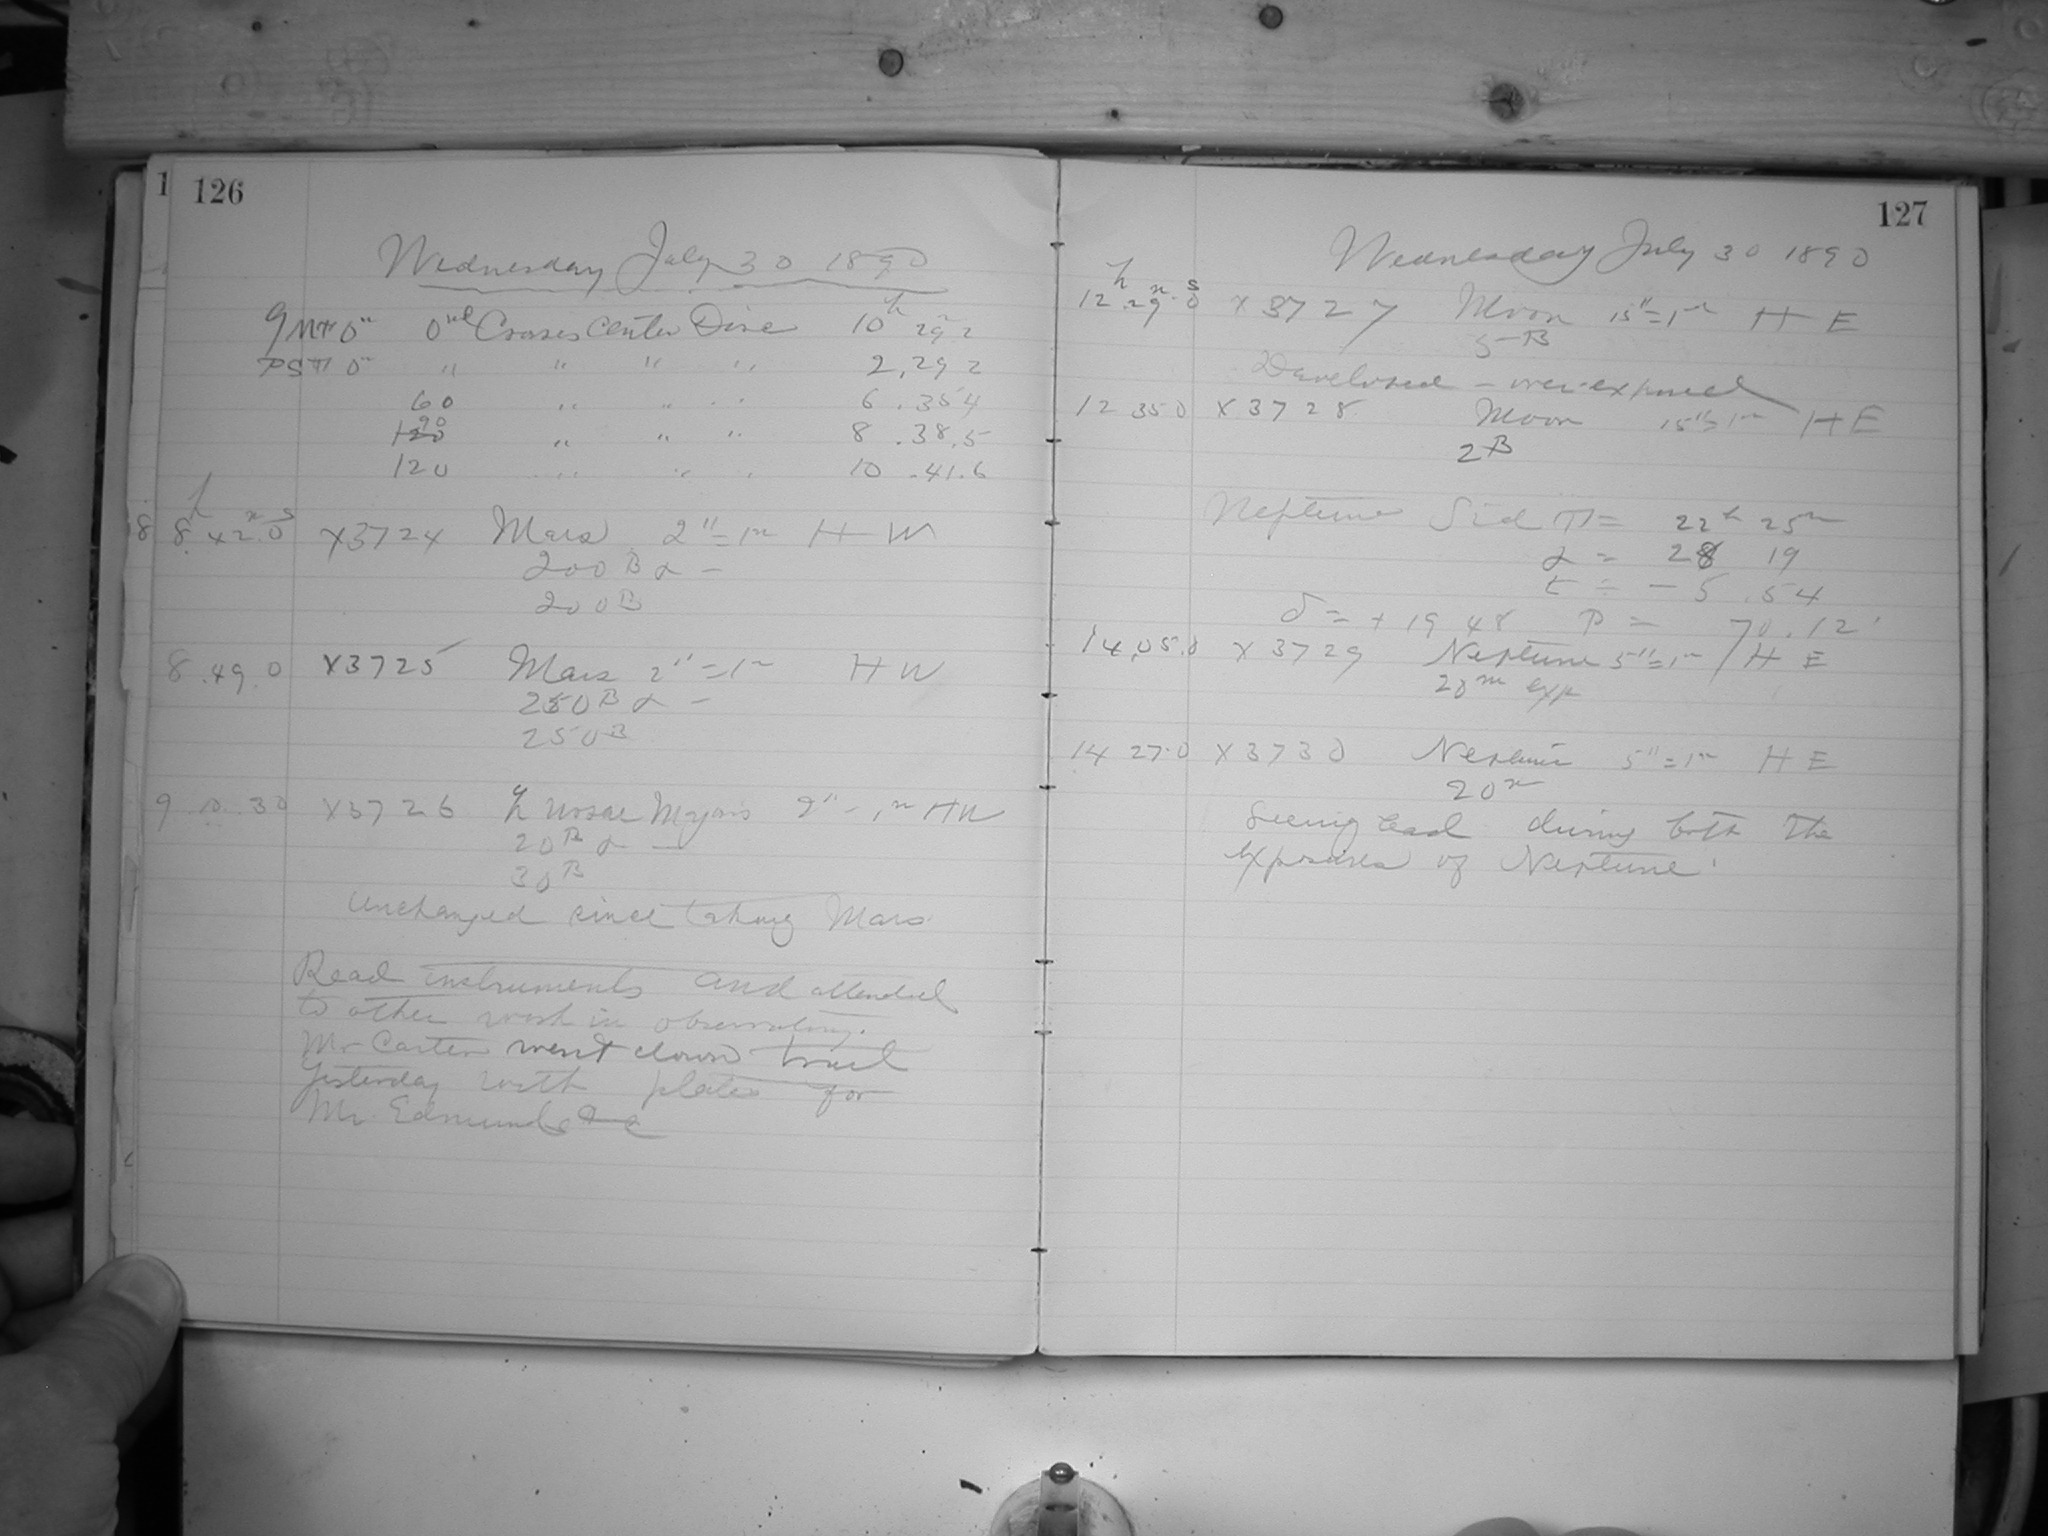 1 126
Wednesday July 30 1890
GMT 0m 0m Crosses Center Disc 10h 29.2
PST 0m " " " " 2,29 2
60 " " " 6.35 4
90
120 " " " 8.38.5
120 " " " 10.41.6
8 8h 42m 0s X3724 Mars 2"=1m H W
200 B α –
200 B
8.49.0 X3725 Mars 2"=1m H W
250 B α –
250 B
9.10.30 X3726 ζ Ursae Majoris 2"=1m H W
20 B α –
30 B
Unchanged since taking Mars
Read instruments and attended
to other work in observatory.
Mr Carter went down trail
Yesterday with plates for
Mr. Edmunds &c
127
Wednesday July 30 1890
12h 29m 0s X3727 Moon 15"=1m H E
5 B
Developed – over-exposed
12 35 0 X3728 Moon 15"=1m H E
2 B
Neptune Sid T = 22h 25m
α = 28 19
t = – 5.54
δ = + 19 48 P = 70.12'
14,05.0 X3729 Neptune 5"=1m H E
20m exp
14 27.0 X3730 Neptune 5"=1m H E
20m
Seeing bad during both the
exposures of Neptune.